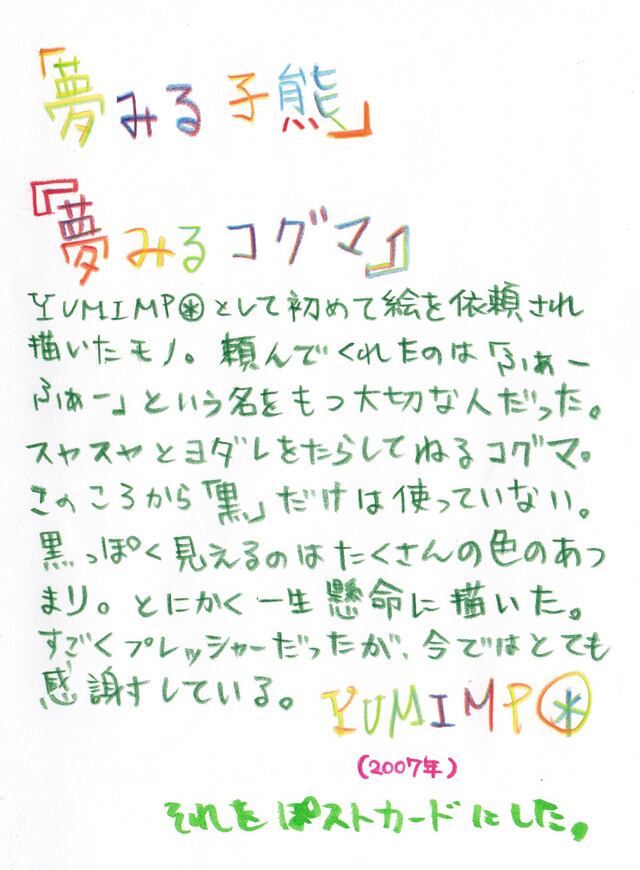 「夢みる子熊」
『夢みるコグマ』
YUMIMP㊍として初めて絵を依頼され
描いたモノ。頼んでくれたのは「ふぁー
ふぁー」という名をもつ大切な人だった。
スヤスヤとヨダレをたらしてねるコグマ。
このころから「黒」だけは使っていない。
黒っぽく見えるのはたくさんの色のあつ
まり。とにかく一生懸命に描いた。
すごくプレッシャーだったが、今ではとても
感謝すしている。
YUMIMP㊍
(2007年)
それをぽストカードにした。